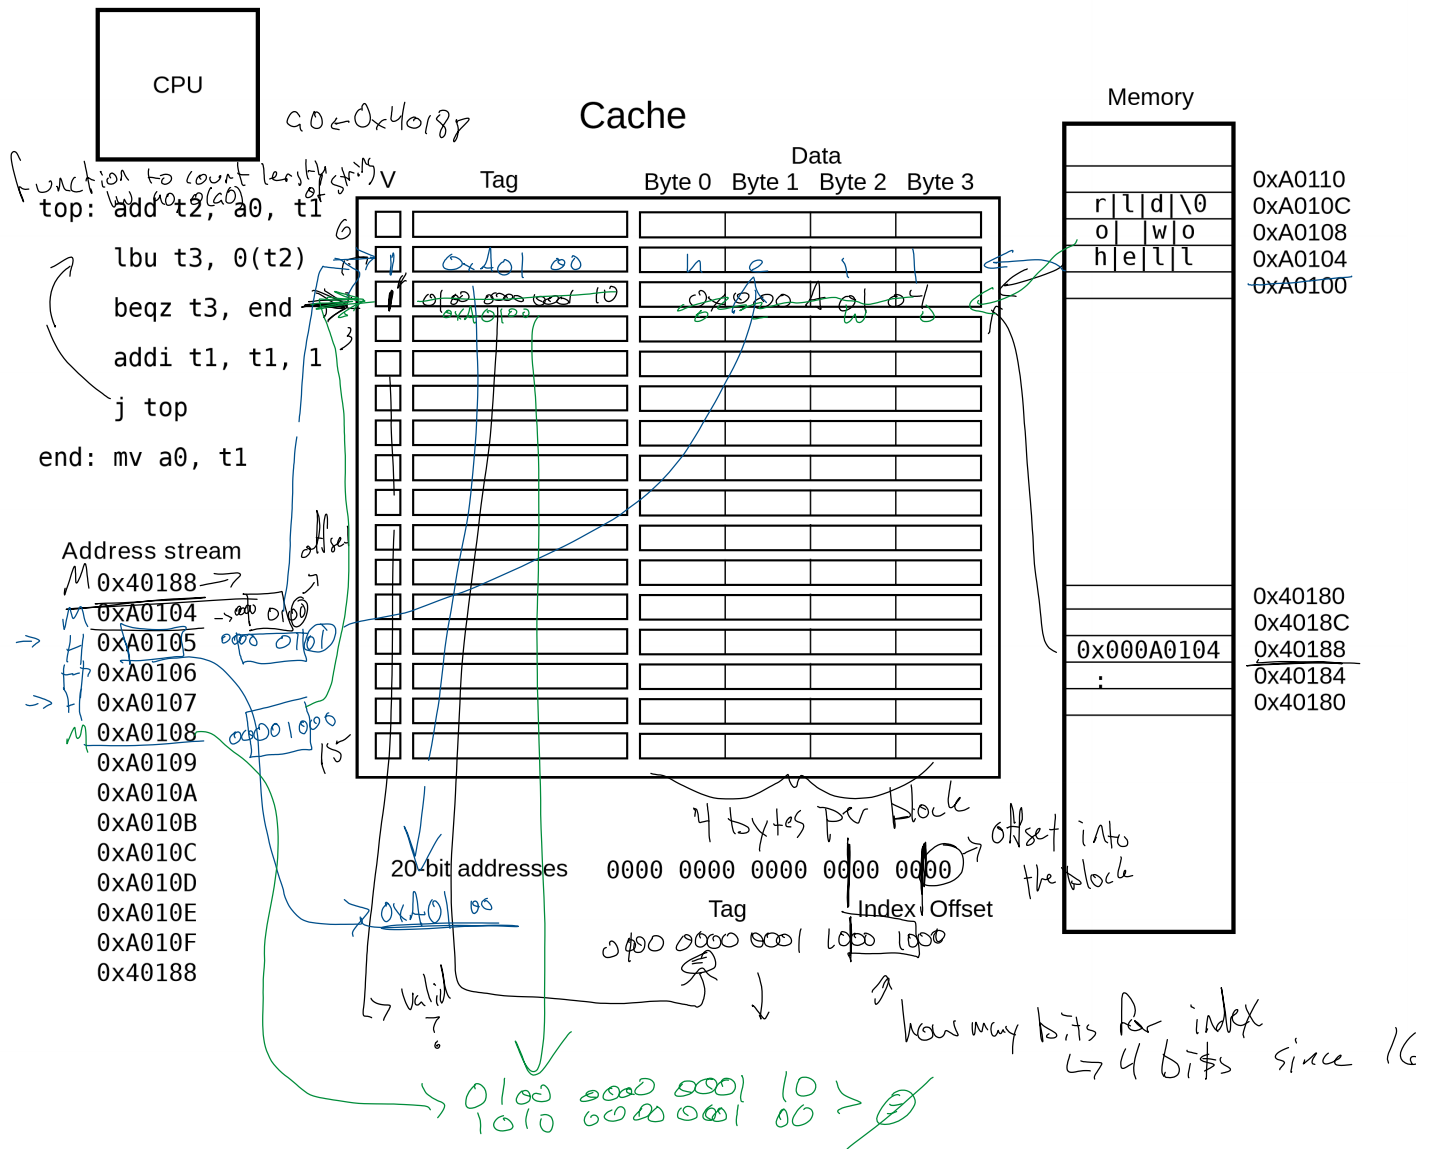 CPU
a0 ← 0x40188
Cache
Memory
function to count length of string
top: add t2, a0, t1
lbu t3, 0(t2)
beqz t3, end
addi t1, t1, 1
j top
end: mv a0, t1
V
Tag
Data
Byte 0
Byte 1
Byte 2
Byte 3
0
1 0xA01 00 h e l l
1 0100 0000 0001 10 0x000A0104
0xA0100 o w o
3
15
0xA0110
r|l|d|\0 0xA010C
o| |w|o 0xA0108
h|e|l|l 0xA0104
0xA0100
0x40180
0x4018C
0x000A0104 0x40188
: 0x40184
0x40180
Address stream
offset
M 0x40188
M 0xA0104 → 000 0100
H 0xA0105 0000 0101
H 0xA0106
H 0xA0107
M 0xA0108 00001000
0xA0109
0xA010A
0xA010B
0xA010C
0xA010D
0xA010E
0xA010F
0x40188
4 bytes per block
20-bit addresses
0000 0000 0000 0000 0000
offset into the block
Tag
Index
Offset
0xA01 00
0100 0000 0001 1000 1000
valid
?
how many bits for index
↳ 4 bits since 16
0100 0000 0001 10
1010 0000 0001 00